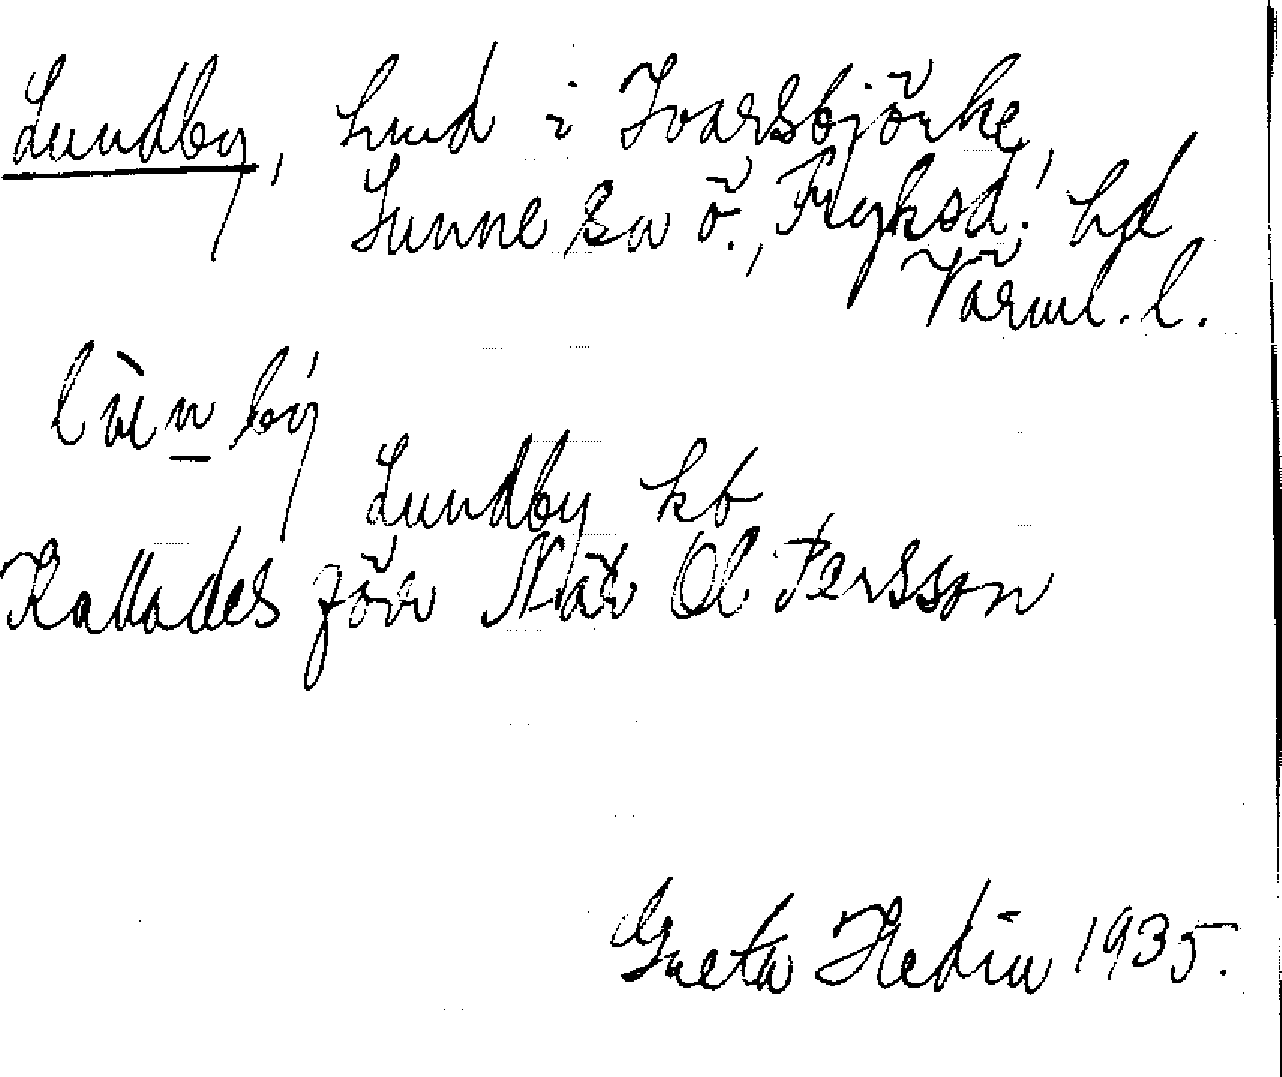 Lundby, hmd i Ivarsbjörke,
Sunne sn ö., Fryksd. hd
Värml. l.
Lundby kb
Kallades förr Näx Ol Persson
Greta Hedin 1935.